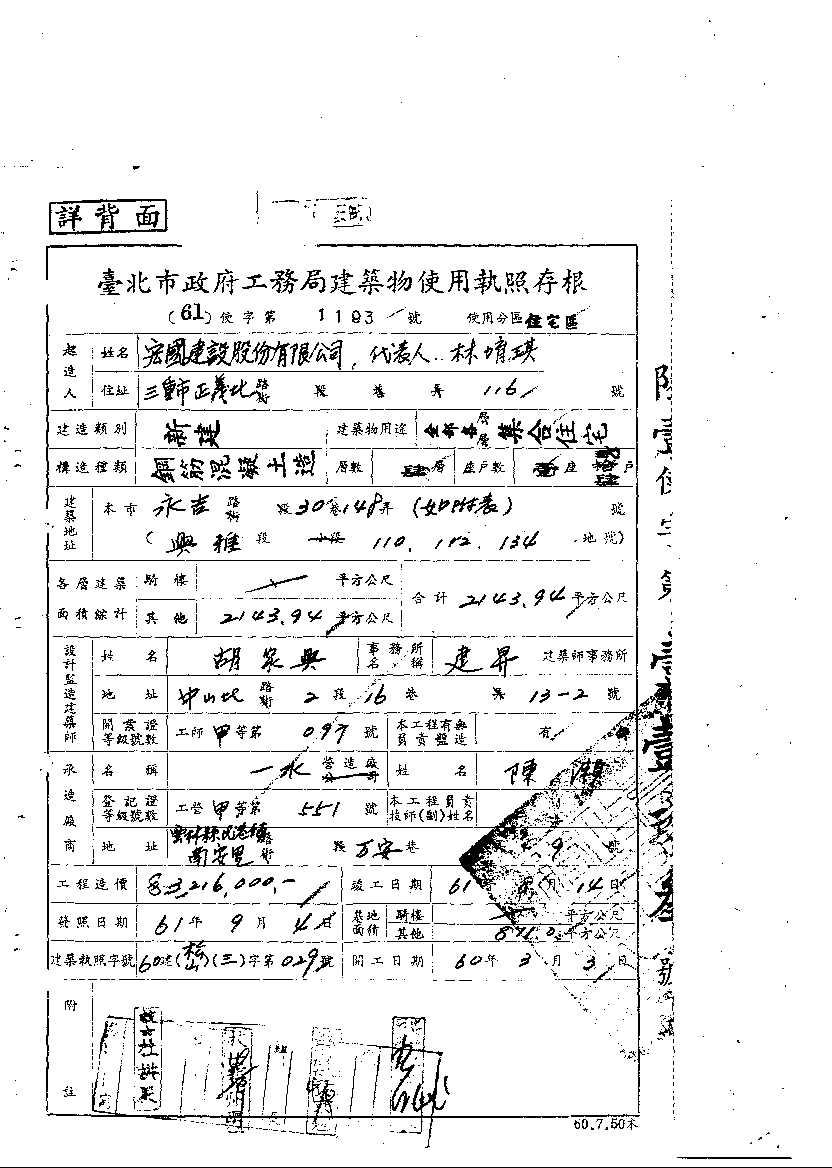 詳背面
臺北市政府工務局建築物使用執照存根
(61)使字第 1193 號 使用分區住宅區
起造人 姓名 宏國建設股份有限公司，代表人：林堉琪
住址 三重市正義北路街 段 巷 弄 116 號
建造類別 新建 建築物用途 全部各層 集合住宅
構造種類 鋼筋混凝土造 層數 層 座戶數 座 戶
建築地址 本市 永吉路街 段30巷148弄(如附表) 號
(興雅段 小段 110、112、134 地號)
各層建築面積綜計 騎樓 平方公尺 合計 2143.94平方公尺
其他 2143.94平方公尺
設計監造建築師 姓名 胡家興 事務所名稱 建昇 建築師事務所
地址 中山北路街 2段16巷 弄 13-2 號
開業證等級號數 工師甲等第 097 號 本工程有無負責監造 有
承造廠商 名稱 一水 營造廠公司 姓名 陳
登記證等級號數 工營甲等第 551 號 本工程負責技師(副)姓名
地址 雲林縣北港鎮路街南安里 段 万安巷 9 號
工程造價 3,216,000,- 竣工日期 61年 月14日
發照日期 61年9月4日 基地面積 騎樓 平方公尺
其他 平方公尺
建築執照字號 60建(松山)(三)字第029號 開工日期 60年3月3日
附註
60.7.50本